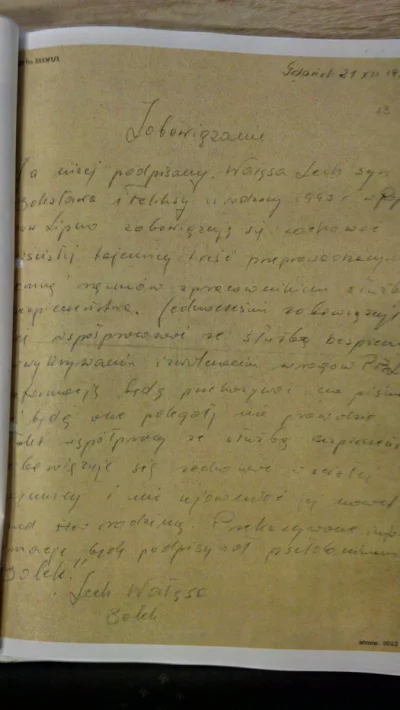 Gdańsk 21 XII 19
Zobowiązanie
Ja niżej podpisany Wałęsa Lech syn
Bolesława i Feliksy urodzony 1943 r w
Lipno zobowiązuję się zachować
ścisłej tajemnicy treść przeprowadzonych
mną rozmów z pracownikiem służby
Jednocześnie zobowiązuję
współpracować ze służbą bezpiecz
wykrywaniu i zwalczaniu wrogów
będę przekazywał na piśmie
będą one polegały na prawdzie
współpracy ze służbą bezpieczeń
się zachować w ścisłej
i nie ujawniać jej nawet
rodziną. Przekazywane info
macje będę podpisywał pseudonimem
Bolek.
Lech Wałęsa
Bolek